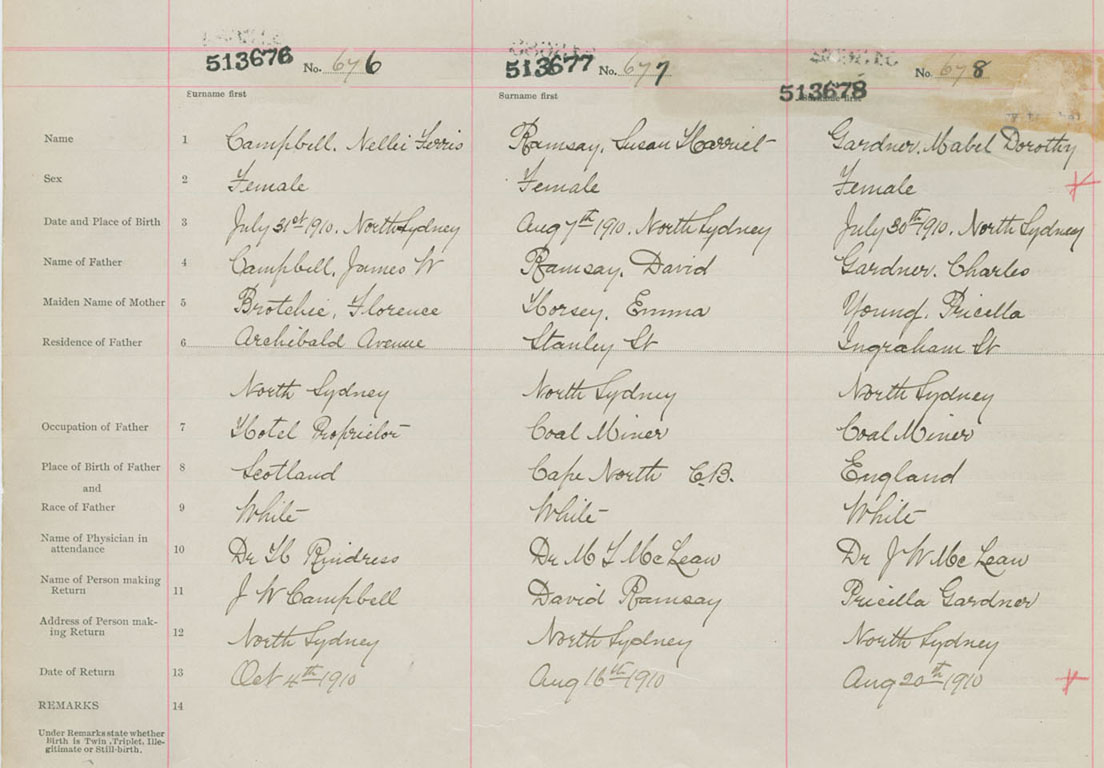 513676 No. 676 513677 No. 677 513678 No. 678
Surname first Surname first Surname first
Name 1 Campbell, Nellie Ferris Ramsay, Susan Harriet Gardner, Mabel Dorothy
Sex 2 Female Female Female
Date and Place of Birth 3 July 31st 1910, North Sydney Aug 7th 1910, North Sydney July 30th 1910, North Sydney
Name of Father 4 Campbell, James W Ramsay, David Gardner, Charles
Maiden Name of Mother 5 Brotchie, Florence Horsey, Emma Young, Pricella
Residence of Father 6 Archibald Avenue Stanley St Ingraham St
North Sydney North Sydney North Sydney
Occupation of Father 7 Hotel Proprietor Coal Miner Coal Miner
Place of Birth of Father 8 Scotland Cape North C.B. England
and
Race of Father 9 White White White
Name of Physician in
attendance 10 Dr H Rindress Dr M T McLean Dr J W McLean
Name of Person making
Return 11 J W Campbell David Ramsay Pricella Gardner
Address of Person mak-
ing Return 12 North Sydney North Sydney North Sydney
Date of Return 13 Oct 4th 1910 Aug 16th 1910 Aug 20th 1910
REMARKS 14
Under Remarks state whether
Birth is Twin, Triplet, Ille-
gitimate or Still-birth.